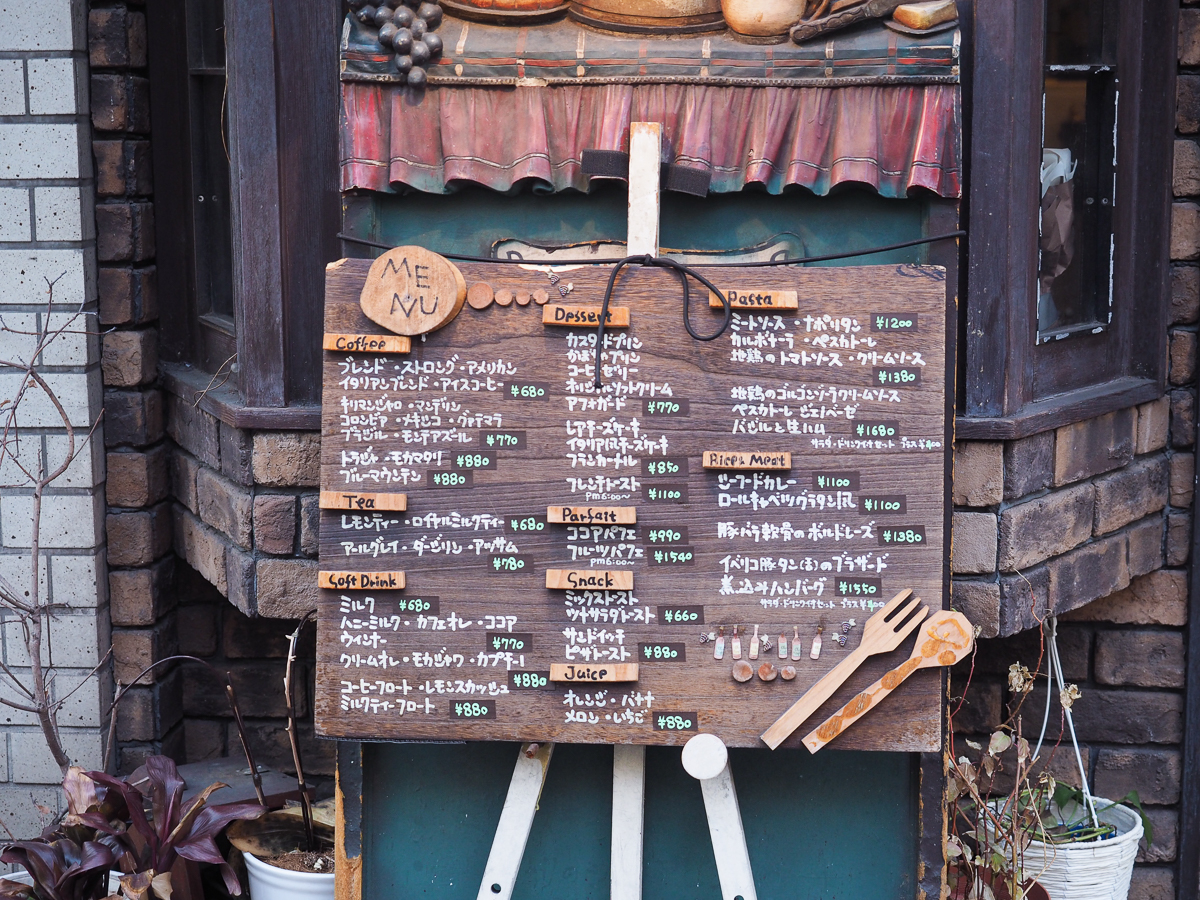 MENU
Coffee
ブレンド・ストロング・アメリカン
イタリアンブレンド・アイスコーヒー ¥680
キリマンジャロ・マンデリン
コロンビア・メキシコ・グァテマラ
ブラジル・モンテアズール ¥770
トラジャ・モカマタリ ¥880
ブルーマウンテン ¥880
Tea
レモンティー・ロイヤルミルクティー ¥680
アールグレイ・ダージリン・アッサム
¥780
Soft Drink
ミルク ¥680
ハニーミルク・カフェオレ・ココア
ウィンナー ¥770
クリームオレ・モカジャワ・カプチーノ
¥880
コーヒーフロート・レモンスカッシュ
ミルクティーフロート ¥880
Dessert
カスタードプリン
かぼちゃプリン
コーヒーゼリー
ソフトクリーム
アフォガード ¥770
レアチーズケーキ
イタリア風チーズケーキ
フランカラメル ¥850
フレンチトースト
pm6:00～ ¥1100
Parfait
ココアパフェ ¥990
フルーツパフェ ¥1540
pm6:00～
Snack
ミックストースト
ツナサラダトースト ¥660
サンドイッチ
ピザトースト ¥880
Juice
オレンジ・バナナ
メロン・いちご ¥880
Pasta
ミートソース・ナポリタン ¥1200
カルボナーラ・ペスカトーレ
地鶏のトマトソース・クリームソース
¥1380
地鶏のゴルゴンゾーラクリームソース
ペスカトーレ ジェノベーゼ
バジルと生ハム ¥1680
サラダ・ドリンク付セット プラス¥400
Rice & Meat
シーフードカレー ¥1100
ロールキャベツグラタン風 ¥1100
豚バラ軟骨のボルドレーズ ¥1380
イベリコ豚タン(舌)のブラザード
煮込みハンバーグ ¥1550
サラダ・ドリンク付セット プラス¥400